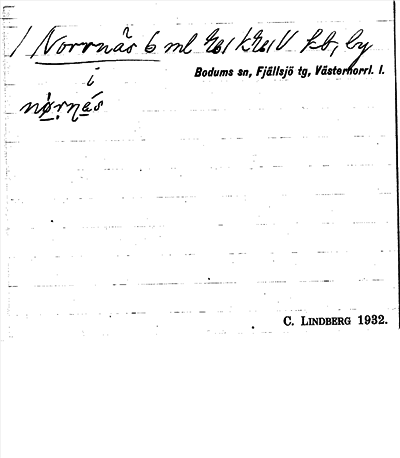 Norrnäs 6 ml kb, by
Bodums sn, Fjällsjö tg, Västernorrl. l.
i
nørnäs
C. LINDBERG 1932.